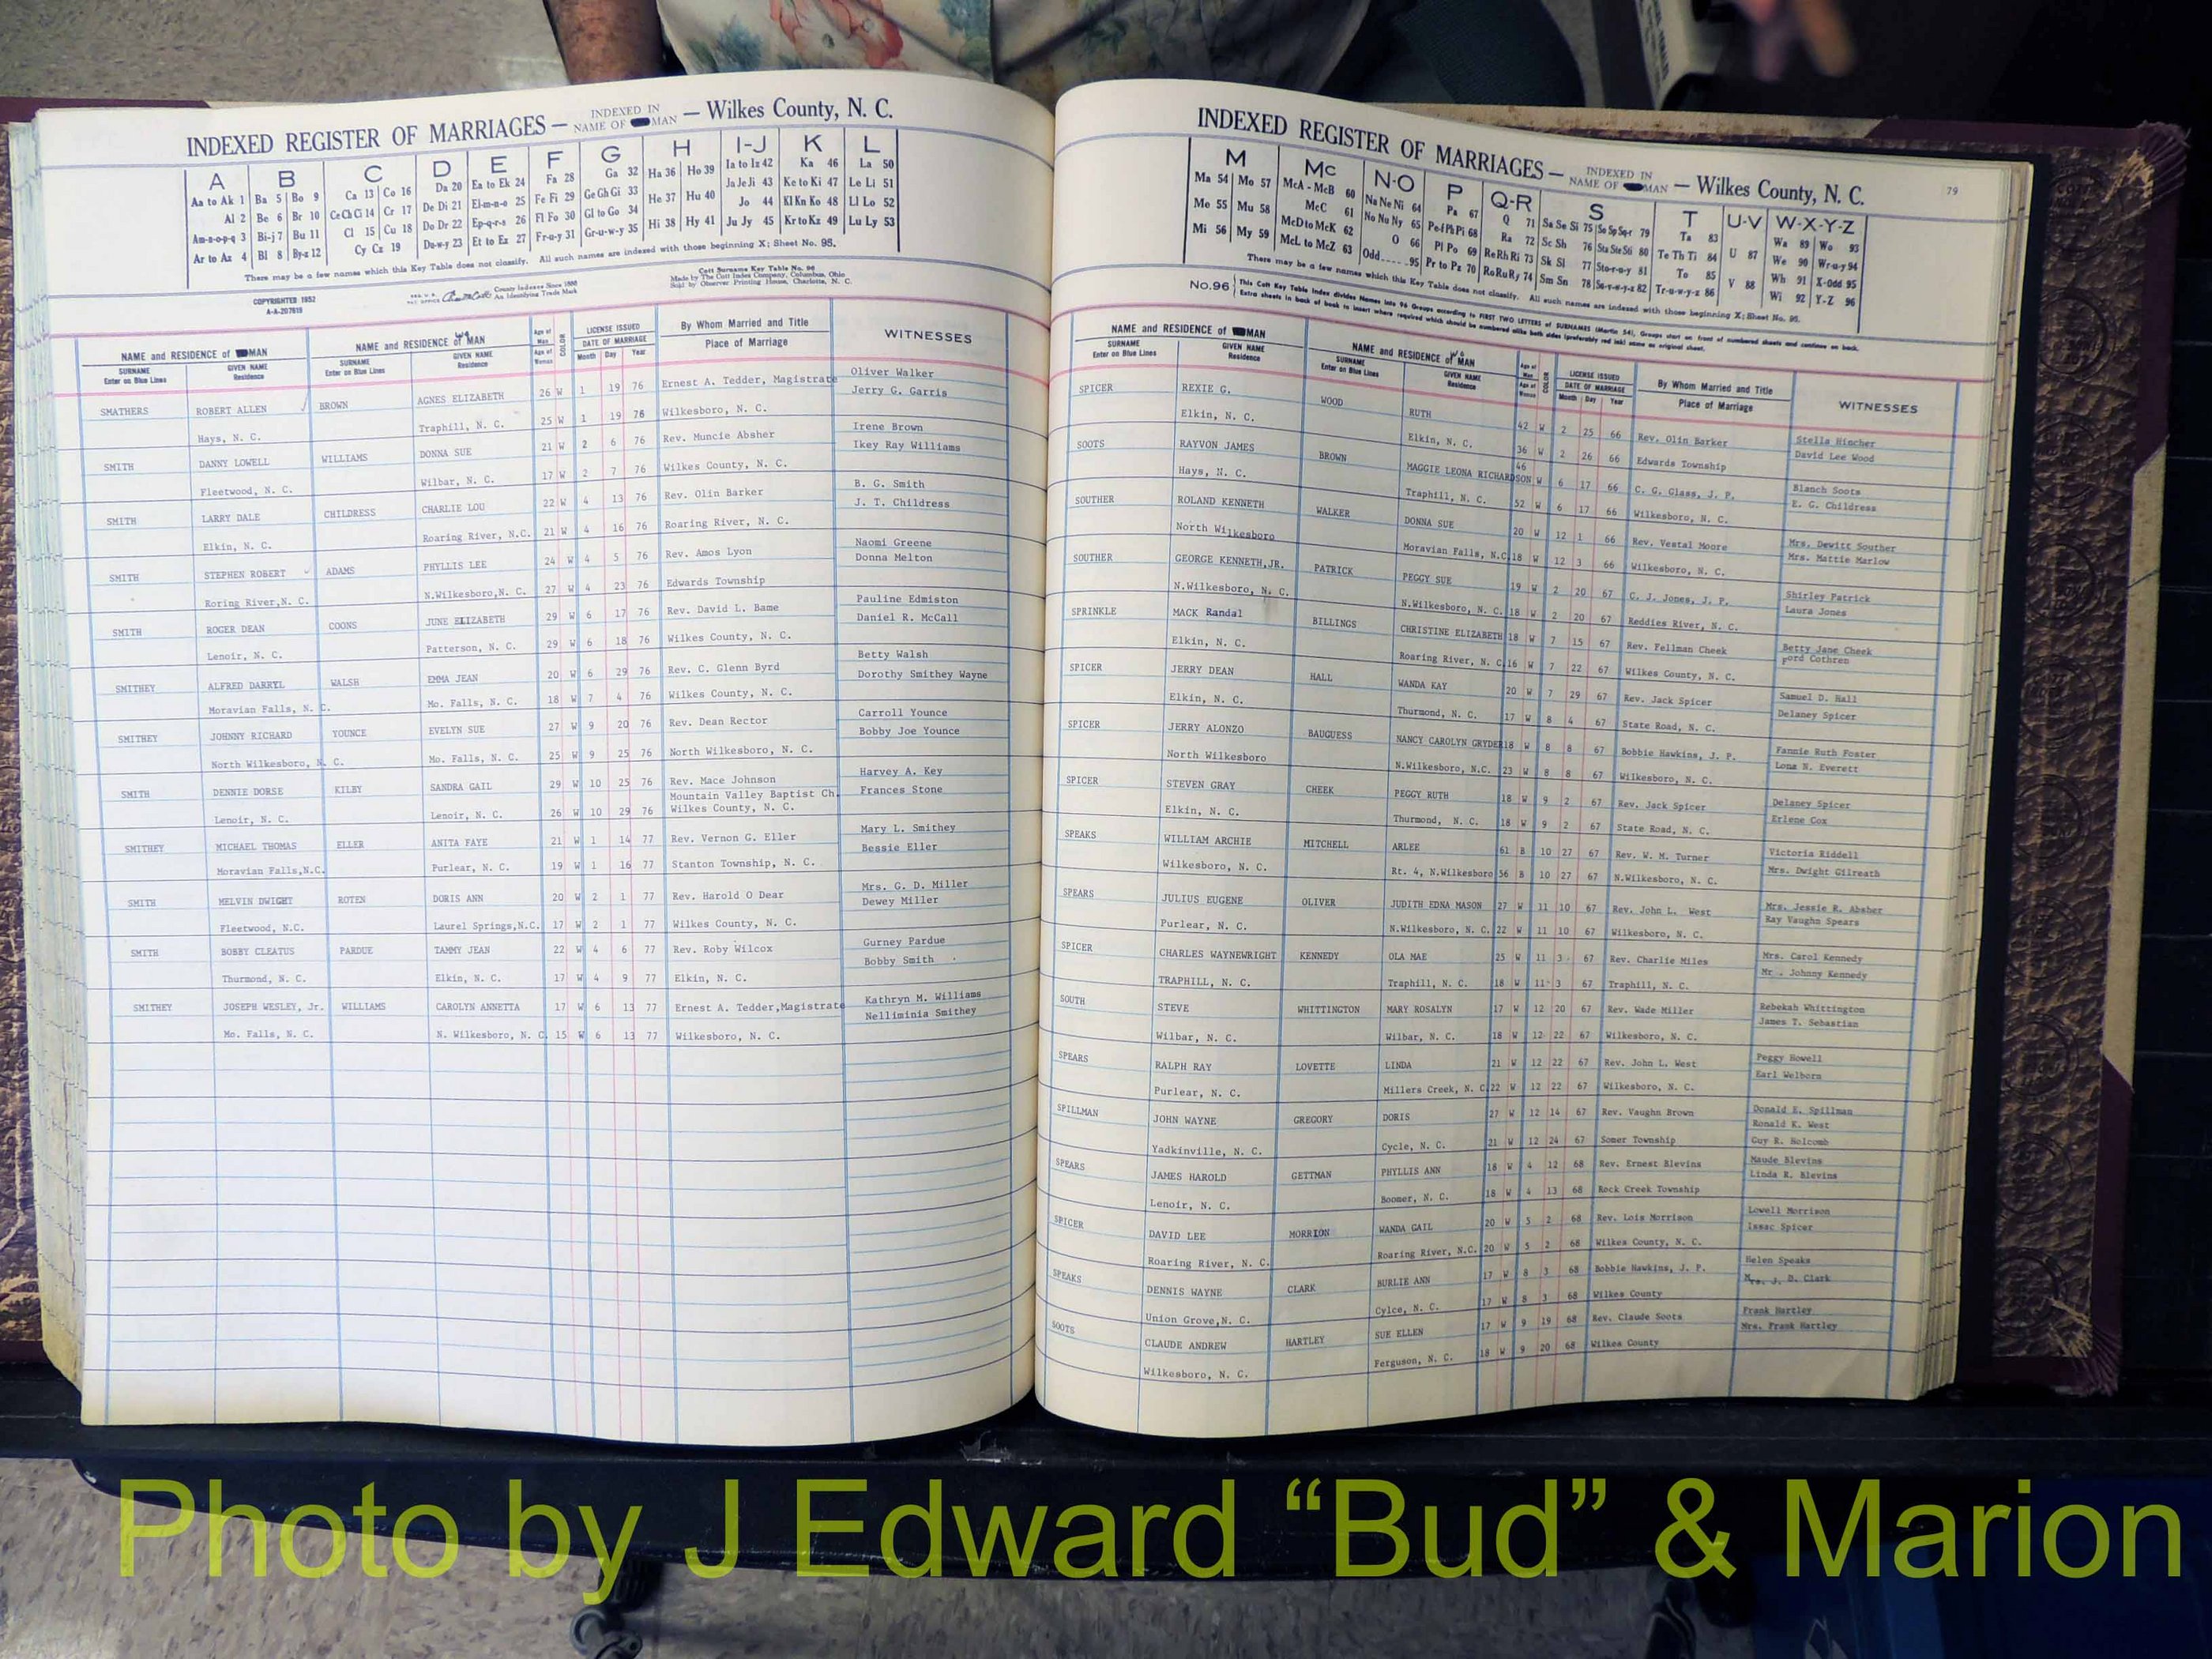 INDEXED REGISTER OF MARRIAGES — INDEXED IN NAME OF MAN — Wilkes County, N. C.
A B C D E F G H I-J K L
Aa to Ak 1 Ba 5 Bo 9 Ca 13 Co 16 Da 20 Ea to Ek 24 Fa 28 Ga 32 Ha 36 Ho 39 Ia to Iz 42 Ka 46 La 50
Al 2 Be 6 Br 10 Ce Ch Ci 14 Cr 17 De Di 21 El-m-n-o 25 Fe Fi 29 Ge Gh Gi 33 He 37 Hu 40 Ja Je Ji 43 Ke to Ki 47 Le Li 51
Am-n-o-p-q 3 Bi-j 7 Bu 11 Cl 15 Cu 18 Do Dr 22 Ep-q-r-s 26 Fl Fo 30 Gl to Go 34 Hi 38 Hy 41 Jo 44 Kl Kn Ko 48 Ll Lo 52
Ar to Az 4 Bl 8 By-z 12 Cy Cz 19 Du-w-y 23 Et to Ez 27 Fr-u-y 31 Gr-u-w-y 35 Ju Jy 45 Kr to Kz 49 Lu Ly 53
There may be a few names which this Key Table does not classify. All such names are indexed with those beginning X; Sheet No. 95.
COPYRIGHTED 1952
A-A-207619
County Indexes Since 1888
An Identifying Trade Mark
Cott Surname Key Table No. 96
Made by The Cott Index Company, Columbus, Ohio
Sold by Observer Printing House, Charlotte, N. C.
NAME and RESIDENCE of MAN
SURNAME Enter on Blue Lines GIVEN NAME Residence
NAME and RESIDENCE of WOMAN
SURNAME Enter on Blue Lines GIVEN NAME Residence
Age of Man Age of Woman COLOR
LICENSE ISSUED DATE OF MARRIAGE Month Day Year
By Whom Married and Title Place of Marriage
WITNESSES
SMATHERS ROBERT ALLEN BROWN AGNES ELIZABETH 26 W 1 19 76 Ernest A. Tedder, Magistrate Oliver Walker
Hays, N. C. Traphill, N. C. 25 W 1 19 76 Wilkesboro, N. C. Jerry G. Garris
SMITH DANNY LOWELL WILLIAMS DONNA SUE 21 W 2 6 76 Rev. Muncie Absher Irene Brown
Fleetwood, N. C. Wilbar, N. C. 17 W 2 7 76 Wilkes County, N. C. Ikey Ray Williams
SMITH LARRY DALE CHILDRESS CHARLIE LOU 22 W 4 13 76 Rev. Olin Barker B. G. Smith
Elkin, N. C. Roaring River, N.C. 21 W 4 16 76 Roaring River, N. C. J. T. Childress
SMITH STEPHEN ROBERT ADAMS PHYLLIS LEE 24 W 4 5 76 Rev. Amos Lyon Naomi Greene
Roring River,N. C. N.Wilkesboro,N. C. 27 W 4 23 76 Edwards Township Donna Melton
SMITH ROGER DEAN COONS JUNE ELIZABETH 29 W 6 17 76 Rev. David L. Bame Pauline Edmiston
Lenoir, N. C. Patterson, N. C. 29 W 6 18 76 Wilkes County, N. C. Daniel R. McCall
SMITHEY ALFRED DARRYL WALSH EMMA JEAN 20 W 6 29 76 Rev. C. Glenn Byrd Betty Walsh
Moravian Falls, N. C. Mo. Falls, N. C. 18 W 7 4 76 Wilkes County, N. C. Dorothy Smithey Wayne
SMITHEY JOHNNY RICHARD YOUNCE EVELYN SUE 27 W 9 20 76 Rev. Dean Rector Carroll Younce
North Wilkesboro, N. C. Mo. Falls, N. C. 25 W 9 25 76 North Wilkesboro, N. C. Bobby Joe Younce
SMITH DENNIE DORSE KILBY SANDRA GAIL 29 W 10 25 76 Rev. Mace Johnson Harvey A. Key
Mountain Valley Baptist Ch.
Lenoir, N. C. Lenoir, N. C. 26 W 10 29 76 Wilkes County, N. C. Frances Stone
SMITHEY MICHAEL THOMAS ELLER ANITA FAYE 21 W 1 14 77 Rev. Vernon G. Eller Mary L. Smithey
Moravian Falls,N.C. Purlear, N. C. 19 W 1 16 77 Stanton Township, N. C. Bessie Eller
SMITH MELVIN DWIGHT ROTEN DORIS ANN 20 W 2 1 77 Rev. Harold O Dear Mrs. G. D. Miller
Fleetwood, N.C. Laurel Springs,N.C. 17 W 2 1 77 Wilkes County, N. C. Dewey Miller
SMITH BOBBY CLEATUS PARDUE TAMMY JEAN 22 W 4 6 77 Rev. Roby Wilcox Gurney Pardue
Thurmond, N. C. Elkin, N. C. 17 W 4 9 77 Elkin, N. C. Bobby Smith
SMITHEY JOSEPH WESLEY, Jr. WILLIAMS CAROLYN ANNETTA 17 W 6 13 77 Ernest A. Tedder,Magistrate Kathryn M. Williams
Mo. Falls, N. C. N. Wilkesboro, N. C. 15 W 6 13 77 Wilkesboro, N. C. Nelliminia Smithey
INDEXED REGISTER OF MARRIAGES — INDEXED IN NAME OF MAN — Wilkes County, N. C.
79
M Mc N-O P Q-R S T U-V W-X-Y-Z
Ma 54 Mo 57 McA - McB 60 Na Ne Ni 64 Pa 67 Q 71 Sa Se Si 75 So Sp Sq-r 79 Ta 83 U 87 Wa 89 Wo 93
Me 55 Mu 58 McC 61 No Nu Ny 65 Pe-f Ph Pi 68 Ra 72 Sc Sh 76 Sta Ste Sti 80 Te Th Ti 84 V 88 We 90 Wr-u-y 94
Mi 56 My 59 McD to McK 62 O 66 Pl Po 69 Re Rh Ri 73 Sk Sl 77 Sto-r-u-y 81 To 85 Wh 91 X-Odd 95
McL to McZ 63 Odd 95 Pr to Pz 70 Ro Ru Ry 74 Sm Sn 78 Su-v-w-y-z 82 Tr-u-w-y-z 86 Wi 92 Y-Z 96
There may be a few names which this Key Table does not classify. All such names are indexed with those beginning X; Sheet No. 95.
No.96 This Cott Key Table Index divides Names into 96 Groups according to FIRST TWO LETTERS of SURNAMES (Martin 54), Groups start on front of numbered sheets and continue on back.
Extra sheets in back of book to insert where required which should be numbered alike both sides (preferably red ink) same as original sheet.
NAME and RESIDENCE of MAN
SURNAME Enter on Blue Lines GIVEN NAME Residence
NAME and RESIDENCE of WOMAN
SURNAME Enter on Blue Lines GIVEN NAME Residence
Age of Man Age of Woman COLOR
LICENSE ISSUED DATE OF MARRIAGE Month Day Year
By Whom Married and Title Place of Marriage
WITNESSES
SPICER REXIE G. WOOD RUTH 42 W 2 25 66 Rev. Olin Barker Stella Hincher
Elkin, N. C. Elkin, N. C. 36 W 2 26 66 Edwards Township David Lee Wood
SOOTS RAYVON JAMES BROWN MAGGIE LEONA RICHARDSON 46 W 6 17 66 C. G. Glass, J. P. Blanch Soots
Hays, N. C. Traphill, N. C. 52 W 6 17 66 Wilkesboro, N. C. E. G. Childress
SOUTHER ROLAND KENNETH WALKER DONNA SUE 20 W 12 1 66 Rev. Vestal Moore Mrs. Dewitt Souther
North Wilkesboro Moravian Falls, N.C. 18 W 12 3 66 Wilkesboro, N. C. Mrs. Mattie Marlow
SOUTHER GEORGE KENNETH,JR. PATRICK PEGGY SUE 19 W 2 20 67 C. J. Jones, J. P. Shirley Patrick
N.Wilkesboro, N. C. N.Wilkesboro, N. C. 18 W 2 20 67 Reddies River, N. C. Laura Jones
SPRINKLE MACK Randal BILLINGS CHRISTINE ELIZABETH 18 W 7 15 67 Rev. Fellman Cheek Betty Jane Cheek
Elkin, N. C. Roaring River, N. C. 16 W 7 22 67 Wilkes County, N. C. Ford Cothren
SPICER JERRY DEAN HALL WANDA KAY 20 W 7 29 67 Rev. Jack Spicer Samuel D. Hall
Elkin, N. C. Thurmond, N. C. 17 W 8 4 67 State Road, N. C. Delaney Spicer
SPICER JERRY ALONZO BAUGUESS NANCY CAROLYN GRYDER 18 W 8 8 67 Bobbie Hawkins, J. P. Fannie Ruth Foster
North Wilkesboro N.Wilkesboro, N.C. 23 W 8 8 67 Wilkesboro, N. C. Lona N. Everett
SPICER STEVEN GRAY CHEEK PEGGY RUTH 18 W 9 2 67 Rev. Jack Spicer Delaney Spicer
Elkin, N. C. Thurmond, N. C. 18 W 9 2 67 State Road, N. C. Erlene Cox
SPEAKS WILLIAM ARCHIE MITCHELL ARLEE 61 B 10 27 67 Rev. W. M. Turner Victoria Riddell
Wilkesboro, N. C. Rt. 4, N.Wilkesboro 56 B 10 27 67 N.Wilkesboro, N. C. Mrs. Dwight Gilreath
SPEARS JULIUS EUGENE OLIVER JUDITH EDNA MASON 27 W 11 10 67 Rev. John L. West Mrs. Jessie R. Absher
Purlear, N. C. N.Wilkesboro, N. C. 22 W 11 10 67 Wilkesboro, N. C. Ray Vaughn Spears
SPICER CHARLES WAYNEWRIGHT KENNEDY OLA MAE 25 W 11 3 67 Rev. Charlie Miles Mrs. Carol Kennedy
TRAPHILL, N. C. Traphill, N. C. 18 W 11 3 67 Traphill, N. C. Mr. Johnny Kennedy
SOUTH STEVE WHITTINGTON MARY ROSALYN 17 W 12 20 67 Rev. Wade Miller Rebekah Whittington
Wilbar, N. C. Wilbar, N. C. 18 W 12 22 67 Wilkesboro, N. C. James T. Sebastian
SPEARS RALPH RAY LOVETTE LINDA 21 W 12 22 67 Rev. John L. West Peggy Howell
Purlear, N. C. Millers Creek, N. C. 22 W 12 22 67 Wilkesboro, N. C. Earl Welborn
SPILLMAN JOHN WAYNE GREGORY DORIS 27 W 12 14 67 Rev. Vaughn Brown Donald E. Spillman
Ronald K. West
Yadkinville, N. C. Cycle, N. C. 21 W 12 24 67 Somer Township Guy R. Holcomb
SPEARS JAMES HAROLD GETTMAN PHYLLIS ANN 18 W 4 12 68 Rev. Ernest Blevins Maude Blevins
Lenoir, N. C. Boomer, N. C. 18 W 4 13 68 Rock Creek Township Linda R. Blevins
SPICER DAVID LEE MORRION WANDA GAIL 20 W 5 2 68 Rev. Lois Morrison Lowell Morrison
Roaring River, N. C. Roaring River, N.C. 20 W 5 2 68 Wilkes County, N. C. Isaac Spicer
SPEAKS DENNIS WAYNE CLARK BURLIE ANN 17 W 8 3 68 Bobbie Hawkins, J. P. Helen Speaks
Union Grove,N. C. Cylce, N. C. 17 W 8 3 68 Wilkes County Mrs. J. D. Clark
SOOTS CLAUDE ANDREW HARTLEY SUE ELLEN 17 W 9 19 68 Rev. Claude Soots Frank Hartley
Wilkesboro, N. C. Ferguson, N. C. 18 W 9 20 68 Wilkes County Mrs. Frank Hartley
Photo by J Edward “Bud” & Marion